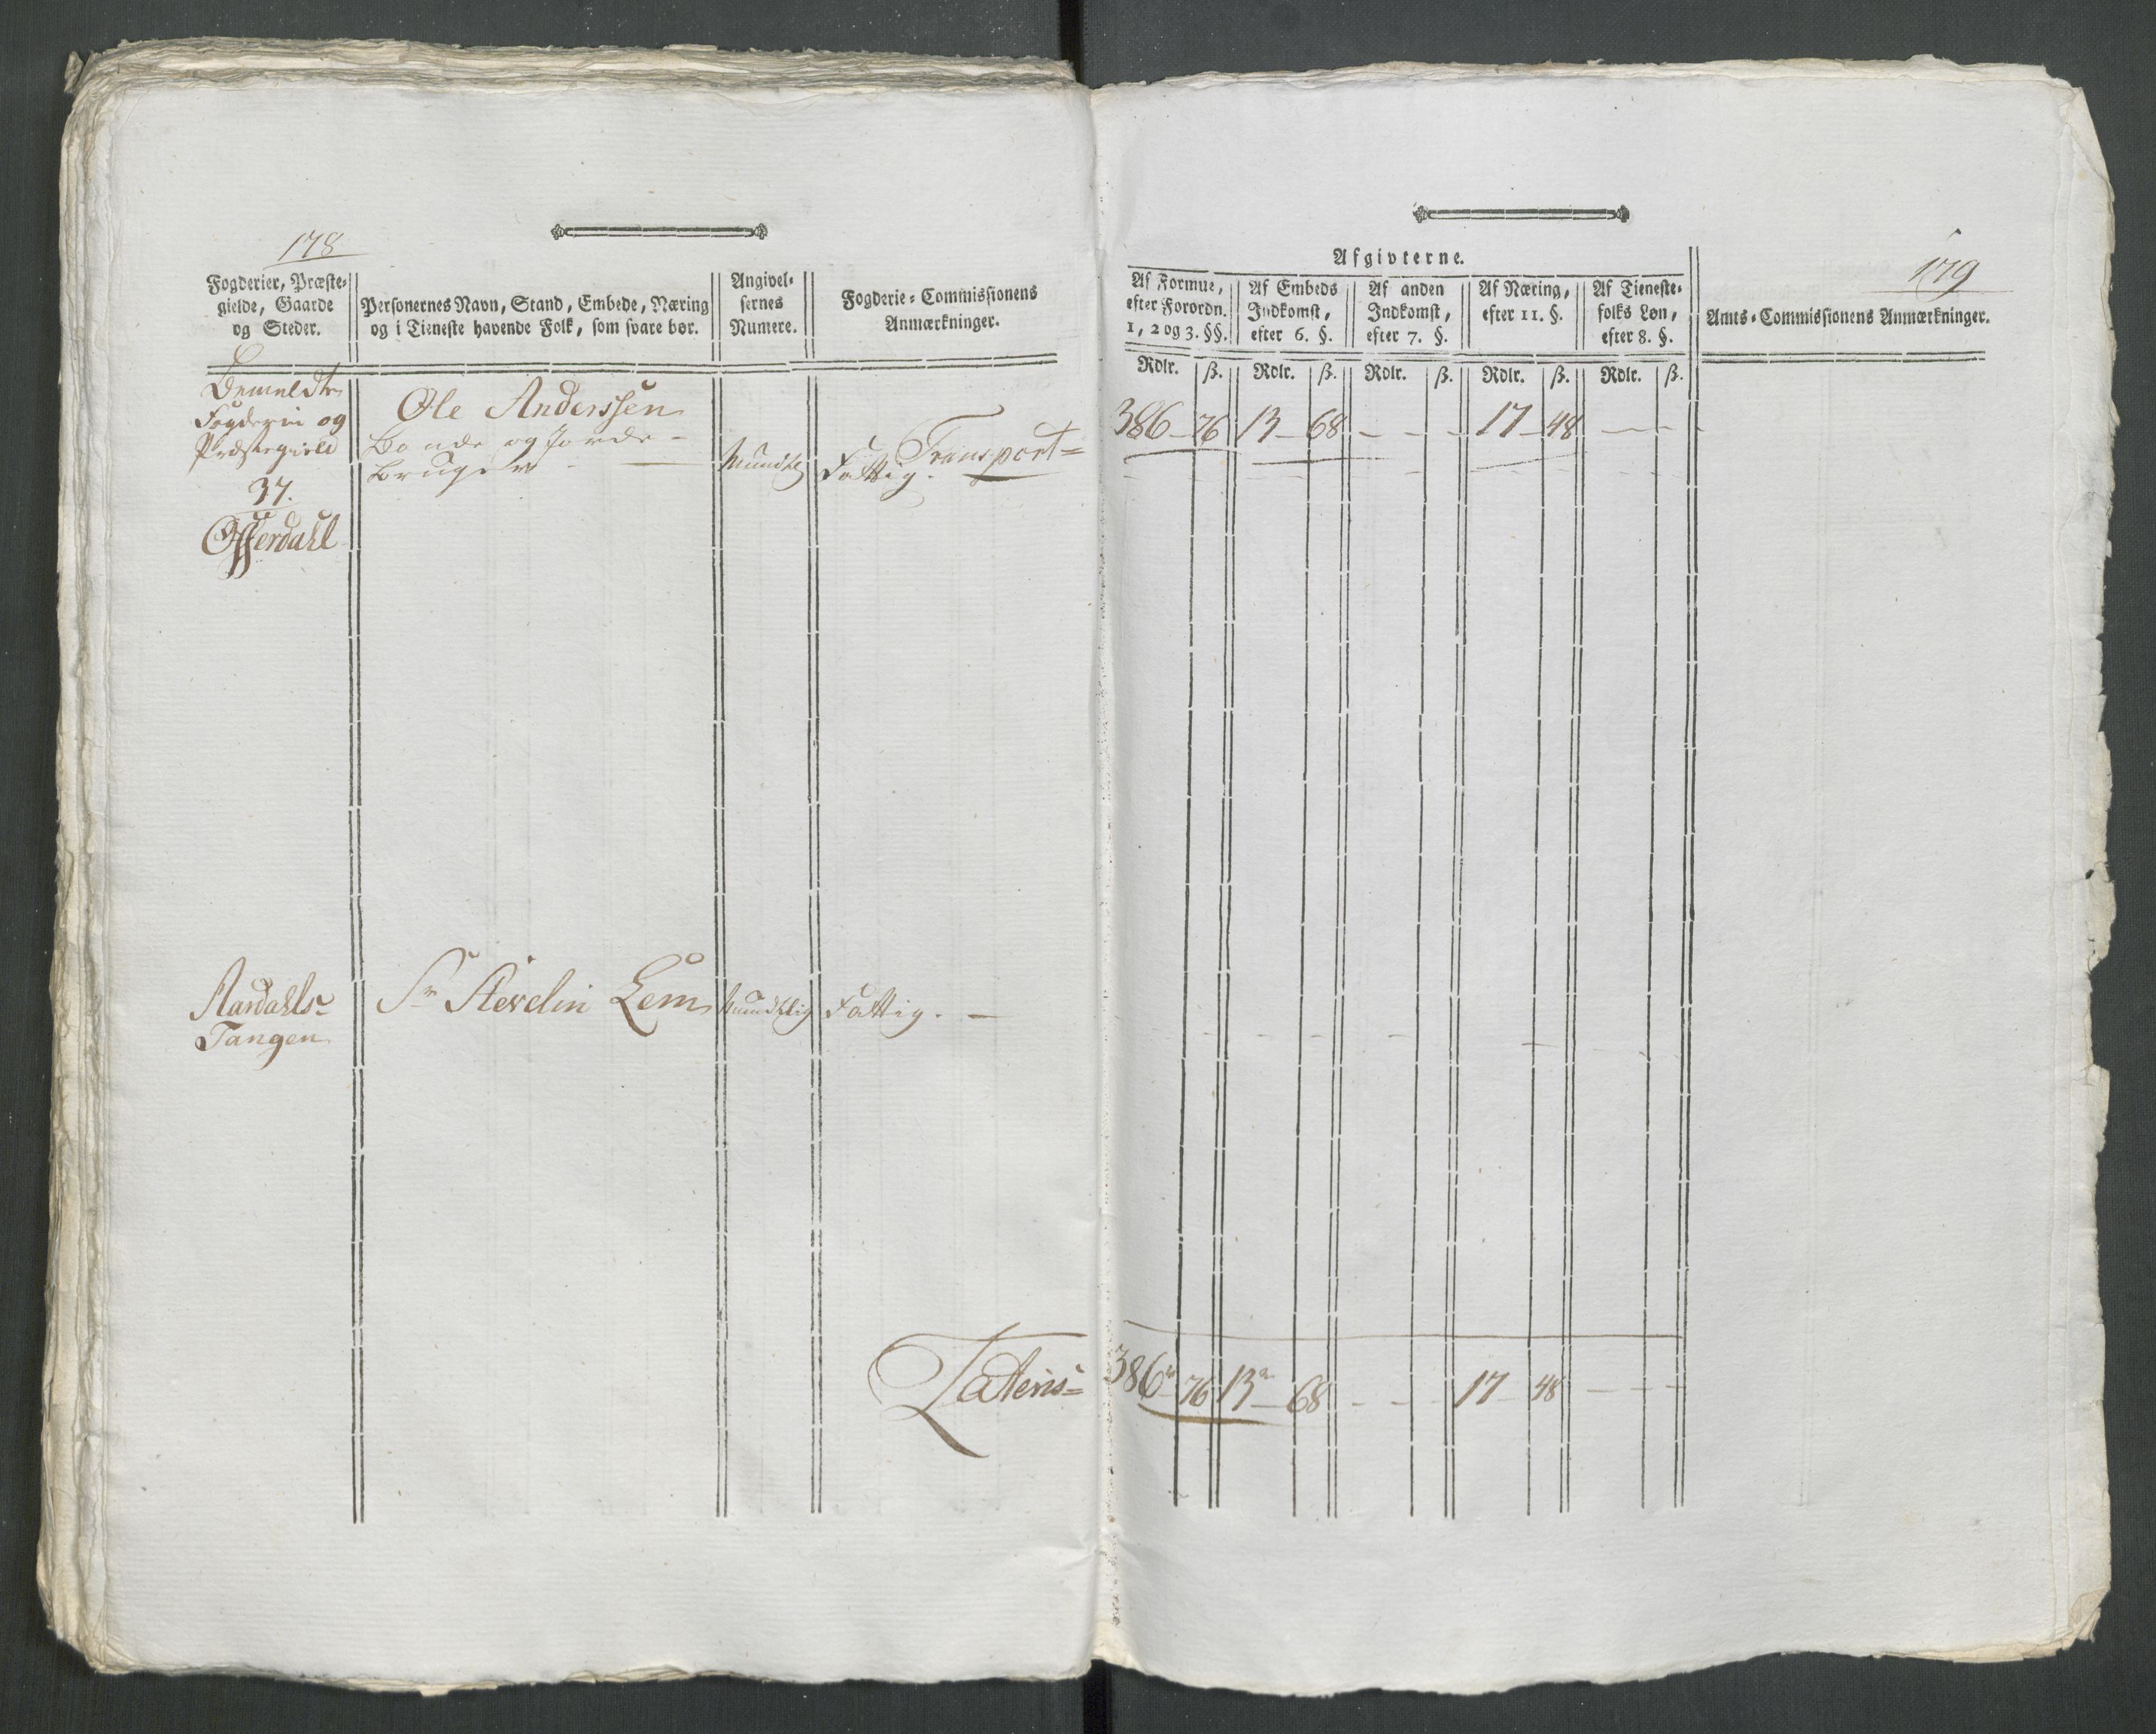 178
Fogderier, Præste-
gielde, Gaarde
og Steder.
Personernes Navn, Stand, Embede, Næring
og i Tieneste havende Folk, som svare bør.
Angivel-
sernes
Numere.
Fogderie-Commissionens
Anmærkninger.
Bemeldte
Fogderie og
Præstegield
37.
Offerdahl
Ole Anderssen
Bonde og Jorde-
bruger
Mundtl
Fattig.
Transport=
Aardahls-
Tangen
Sr Stevelin Lem
Mundtlig
Fattig. —
Lateris=
179
Afgivterne.
Af Formue,
efter Forordn.
1, 2 og 3. §§.
Af Embeds
Indkomst,
efter 6. §.
Af anden
Indkomst,
efter 7. §.
Af Næring,
efter 11. §.
Af Tieneste-
folks Løn,
efter 8. §.
Amts-Commissionens Anmærkninger.
Rdlr. ß. Rdlr. ß. Rdlr. ß. Rdlr. ß. Rdlr. ß.
386 76 13 68 - - - 17 48 - - -
386 76 13 68 - - - 17 48 - - -